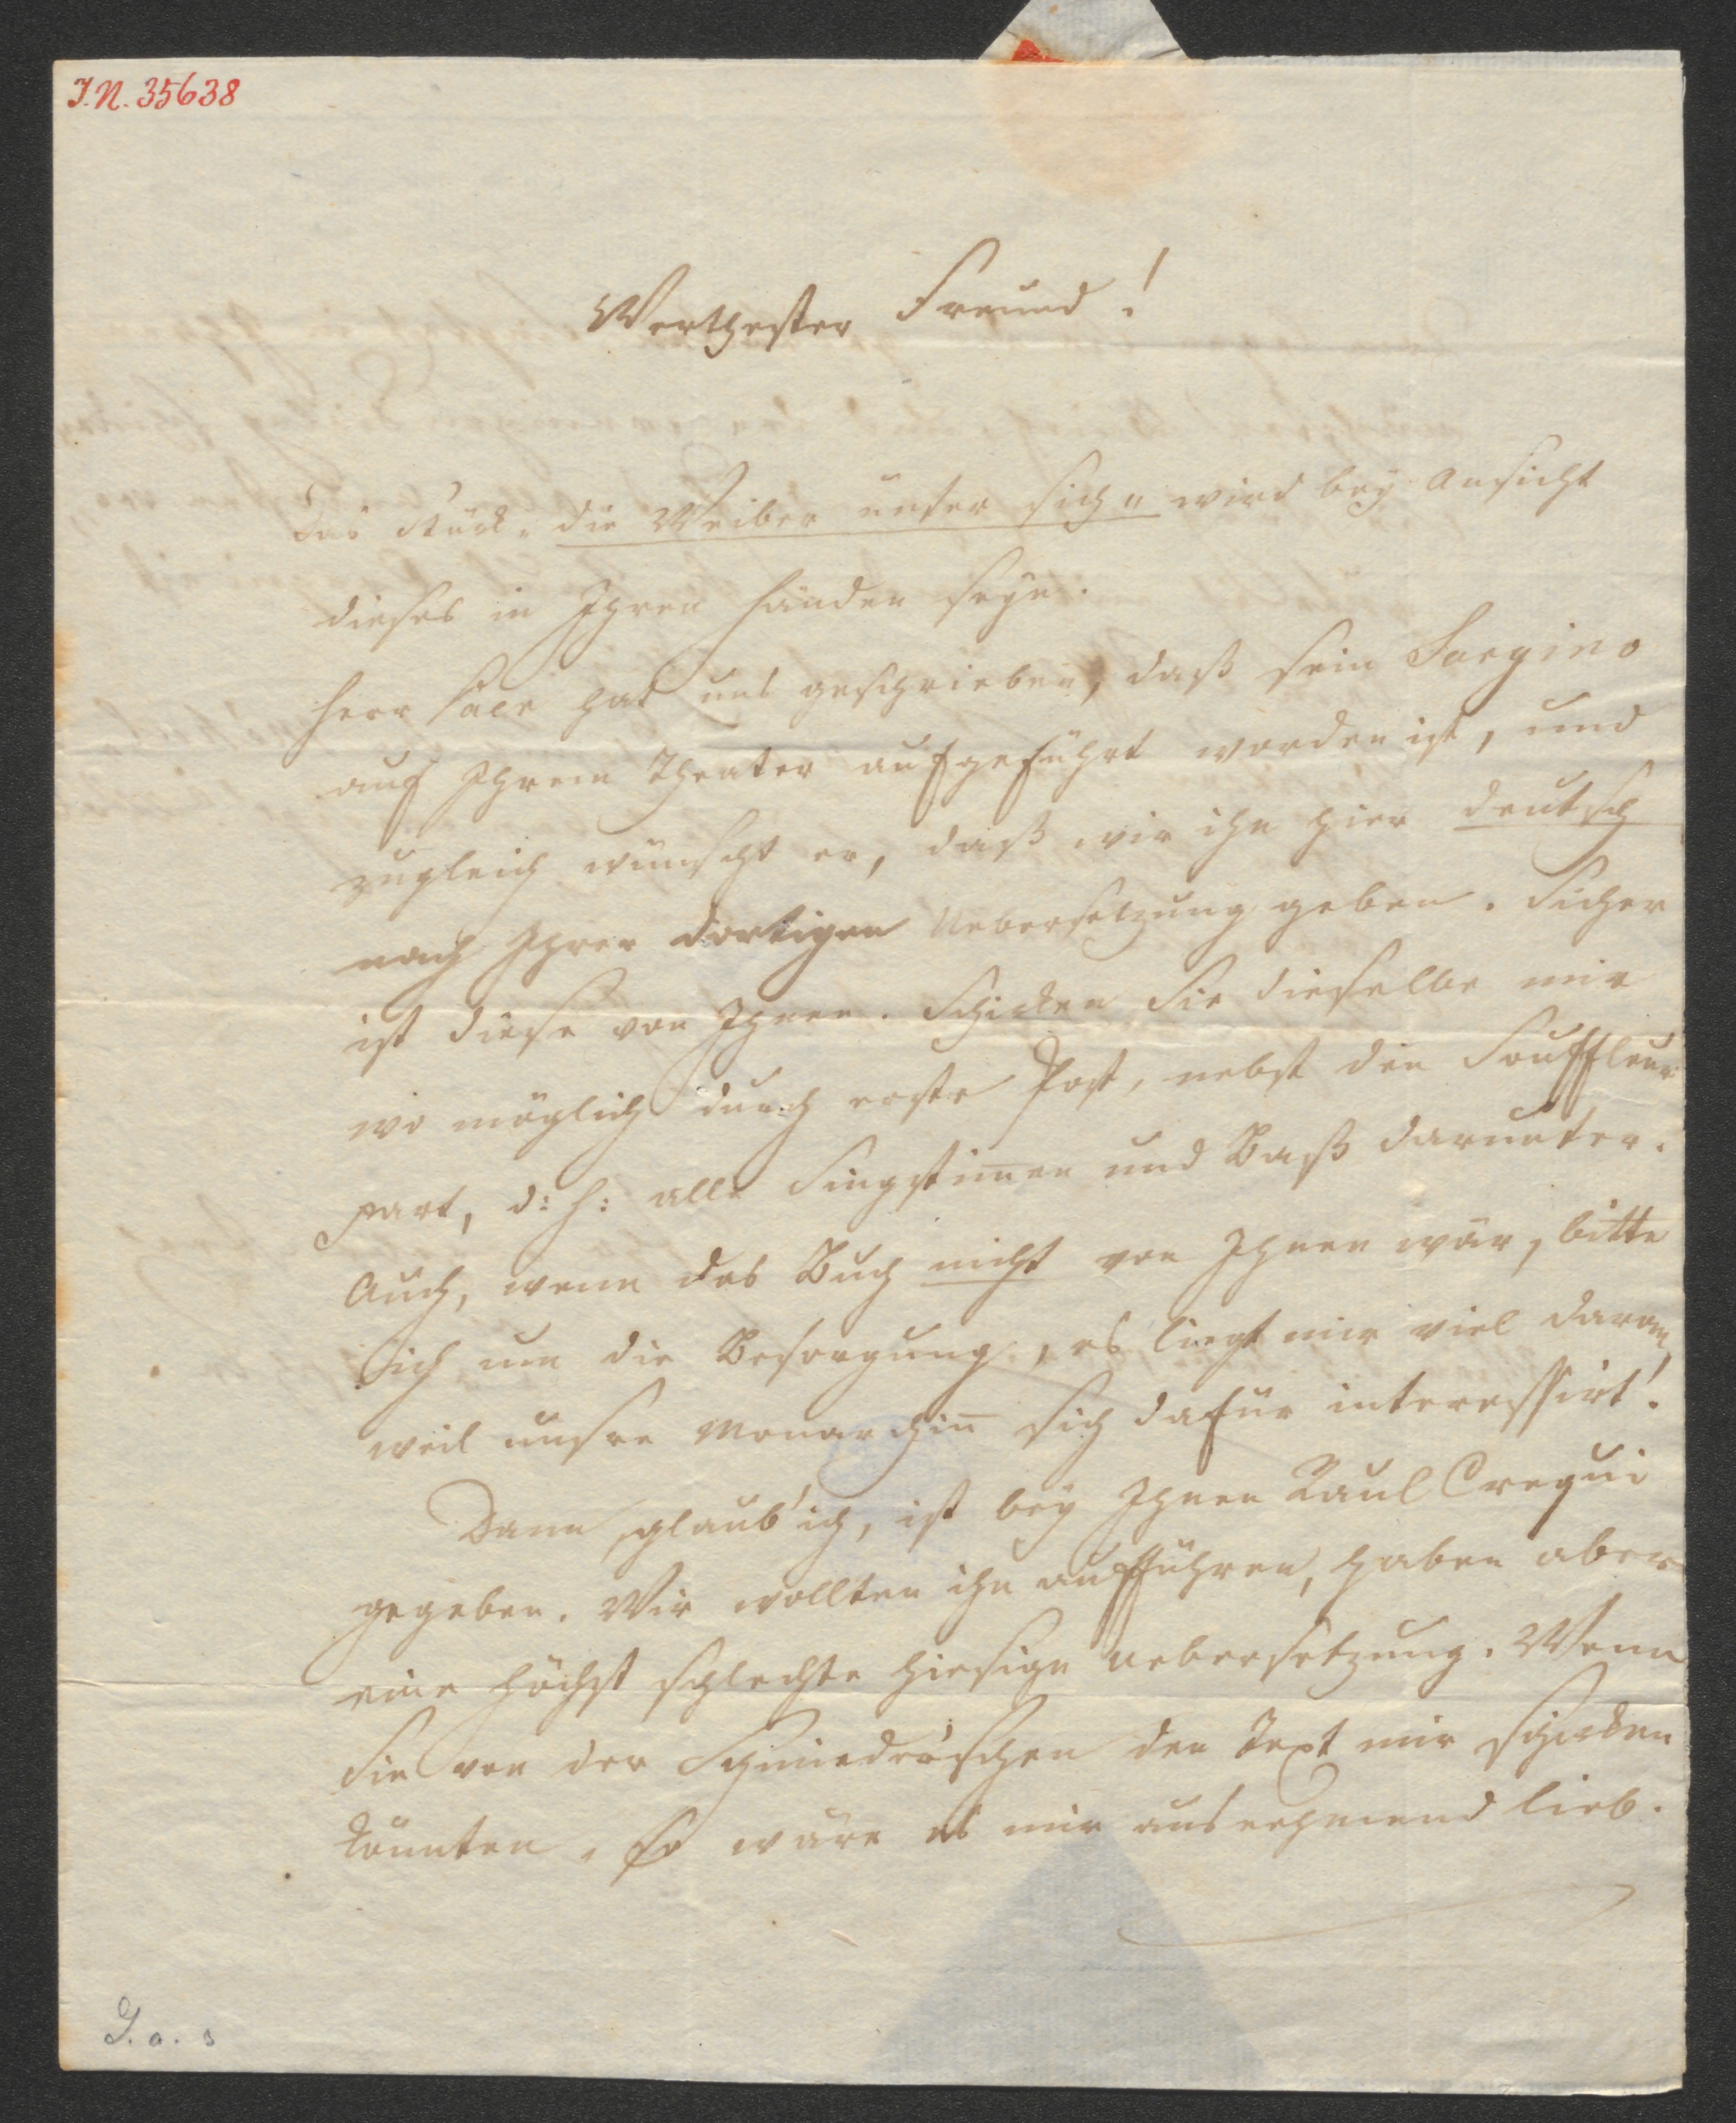 I.N. 35638
Werthester Freund!
Das Stück „die Weiber unter sich" wird bey Ansicht
dieses in Ihren Händen seyn.
Herr Paer hat uns geschrieben, daß sein Sargino
auf Ihrem Theater aufgeführt worden ist, und
zugleich wünscht er, daß wir ihn hier deutsch
nach Ihrer dortigen Uebersetzung geben. Sicher
ist diese von Ihnen. Schicken Sie dieselbe mir
wo möglich durch erste Post, nebst den Souffleur
part, d: h: alle Singstim̅en und Baß darunter.
Auch, wenn das Buch nicht von Ihnen wär, bitte
ich um die Besorgung, es liegt mir viel daran,
weil unsre Monarchin̅ sich dafür interessirt!
Dann, glaub' ich, ist bey Ihnen Raul Crequi
gegeben. Wir wollten ihn aufführen, haben aber
eine höchst schlechte hiesige Uebersetzung. Wenn
Sie von der Schmieder'schen den Text mir schicken
könnten, so wäre es mir ausnehmend lieb.